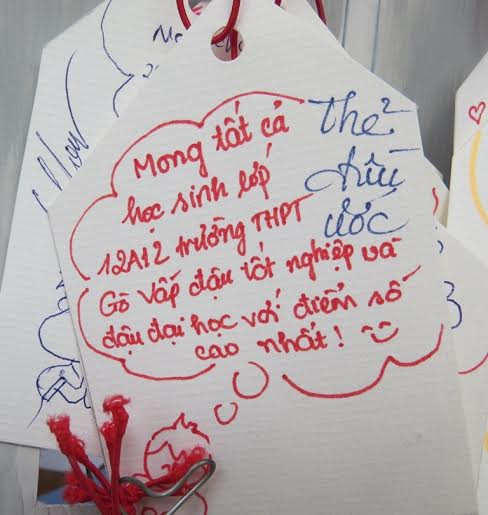 Mong tất cả
học sinh lớp
12A12 trường THPT
Gò Vấp đậu tốt nghiệp và
đậu đại học với điểm số
cao nhất!
Thẻ
ước